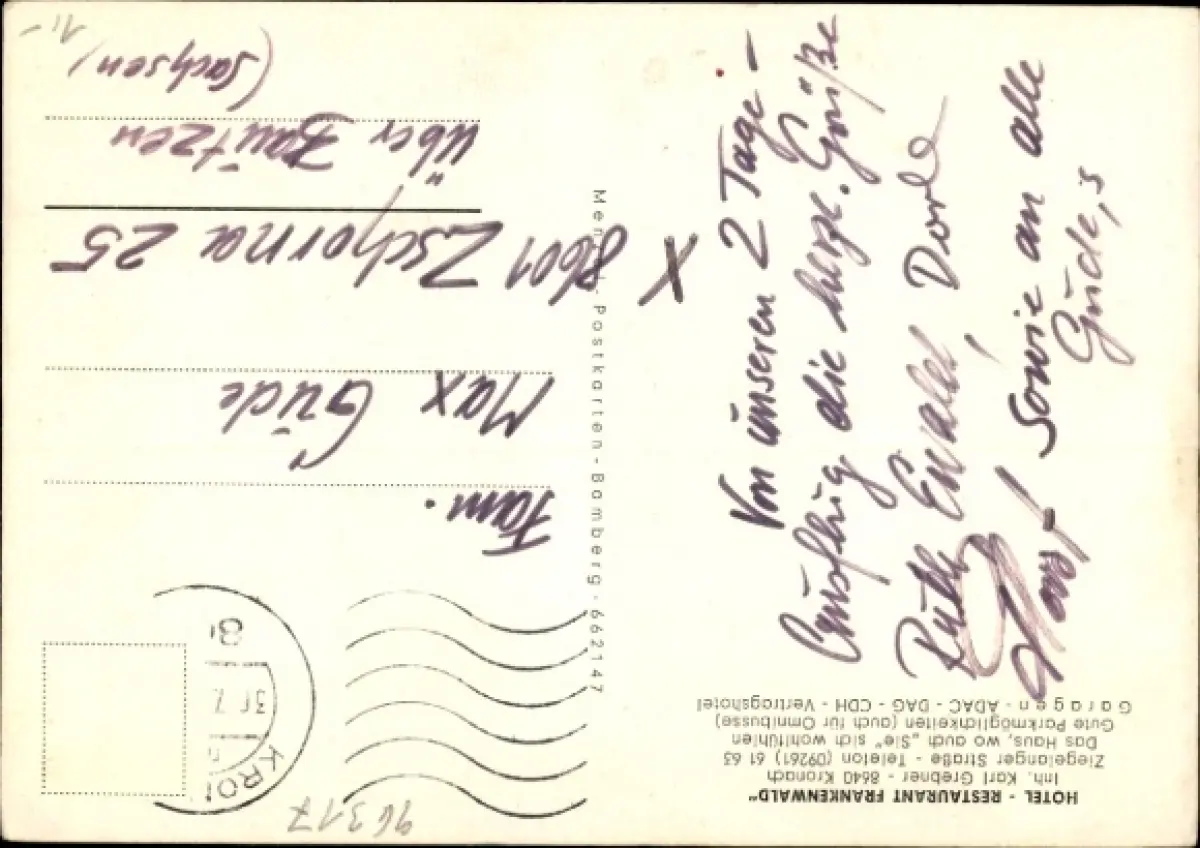 HOTEL - RESTAURANT FRANKENWALD"
Inh. Karl Grebner - 8640 Kronach
Ziegelanger Straße - Telefon (09261) 61 63
Das Haus, wo auch „Sie" sich wohlfühlen
Gute Parkmöglichkeiten (auch für Omnibusse)
Garagen - ADAC - DAG - CDH - Vertragshotel
Von unseren 2 Tage -
Ausflug die herzl. Grüße
Ruth Ewald, Dorle
Horst sowie an alle
Güde,s
Postkarten-Bamberg-662147
KRON
Fam.
Max Güde
X 8601 Zschorna 25
über Bautzen
(Sachsen)
96317
1,-